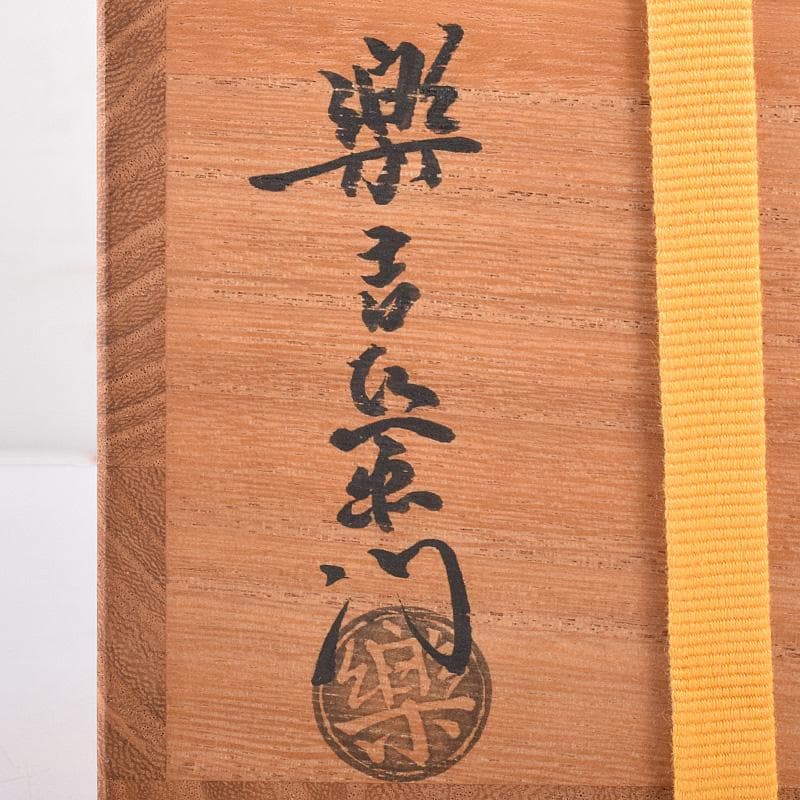 樂吉左衞門
樂